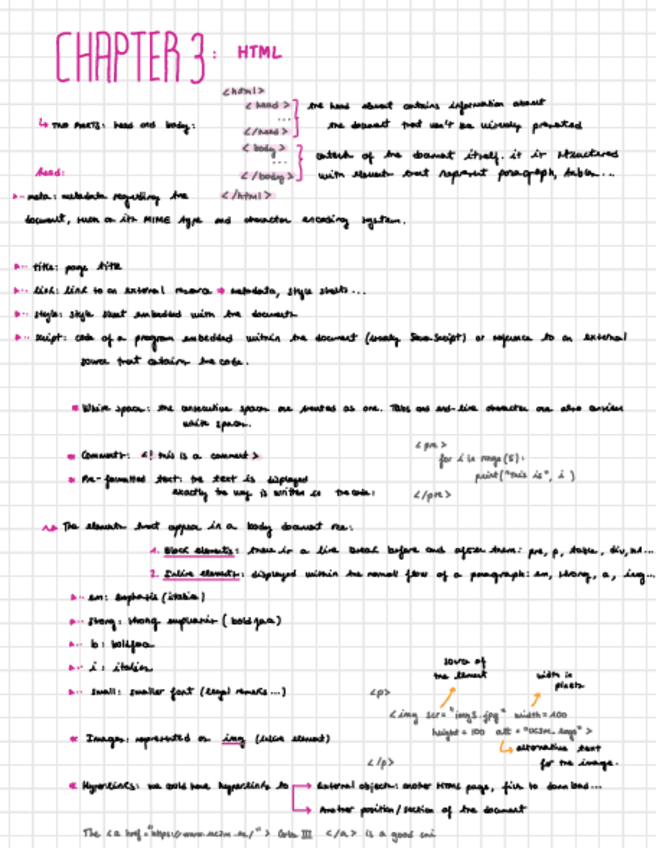 CHAPTER 3: HTML
<html>
<head>
...
</head>
the head element contains information about
the document that won't be visually presented
↳ TWO PARTS: head and body:
<body>
...
</body>
</html>
contents of the document itself. it is structured
with elements that represent paragraph, tables...
head:
meta: metadata regarding the
document, such as its MIME type and character encoding system.
title: page title
link: link to an external resource → metadata, style sheets...
style: style sheet embedded with the document
script: code of a program embedded within the document (usually JavaScript) or reference to an external
source that contains the code.
White space: the consecutive spaces are treated as one. Tabs and end-line character are also
white spaces.
Comments: <! this is a comment >
Pre-formatted text: the text is displayed
exactly the way is written in the code:
<pre>
for i in range(5):
print("this is", i)
</pre>
The elements that appear in a body document are:
1. Block elements: there is a line break before and after them: pre, p, table, div,
2. Inline elements: displayed within the normal flow of a paragraph: em, strong, a, img...
em: emphasis (italics)
strong: strong emphasis (boldface)
b: boldface
i: italics
small: smaller font (legal remarks...)
Images: represented as img (inline element)
source of
the element
width in
pixels
<p>
<img scr="img3.jpg" width=100
height=100 alt= >
alternative text
for the image.
</p>
Hyperlinks: we could have hyperlinks to → External objects: another HTML page, files to download...
→ Another position/section of the document
The <a href= > III </a> is a good uni